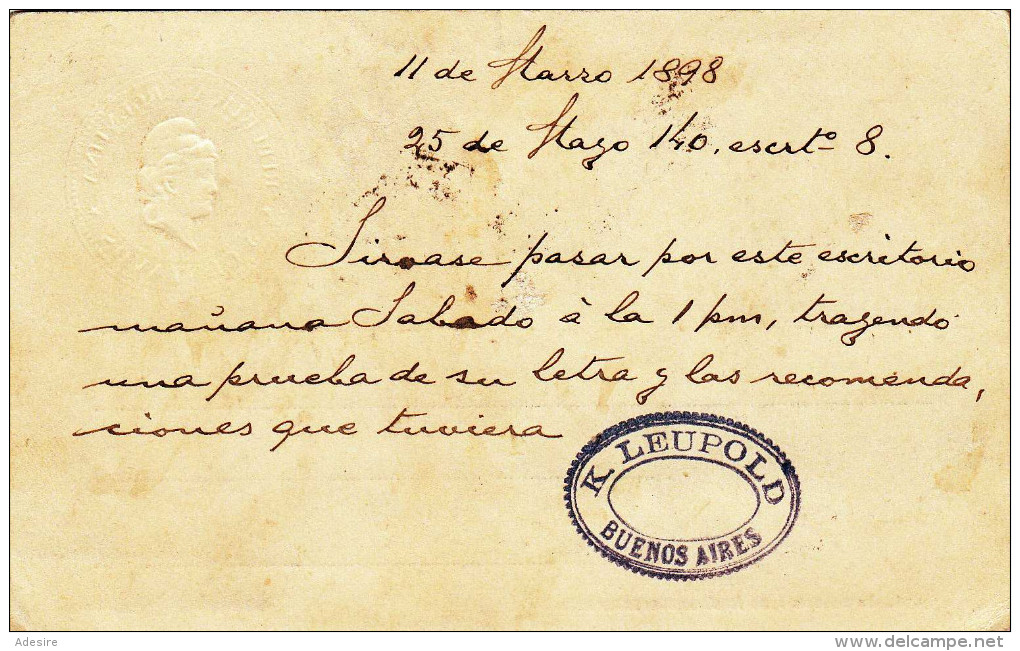 11 de Marzo 1898
25 de Mayo 140, escrt.º 8.
Sirvase pasar por este escritorio
mañana Sabado à la 1 pm, trayendo
una prueba de su letra y las recomenda,
ciones que tuviera
K. LEUPOLD
BUENOS AIRES
Adesire
www.delcampe.net